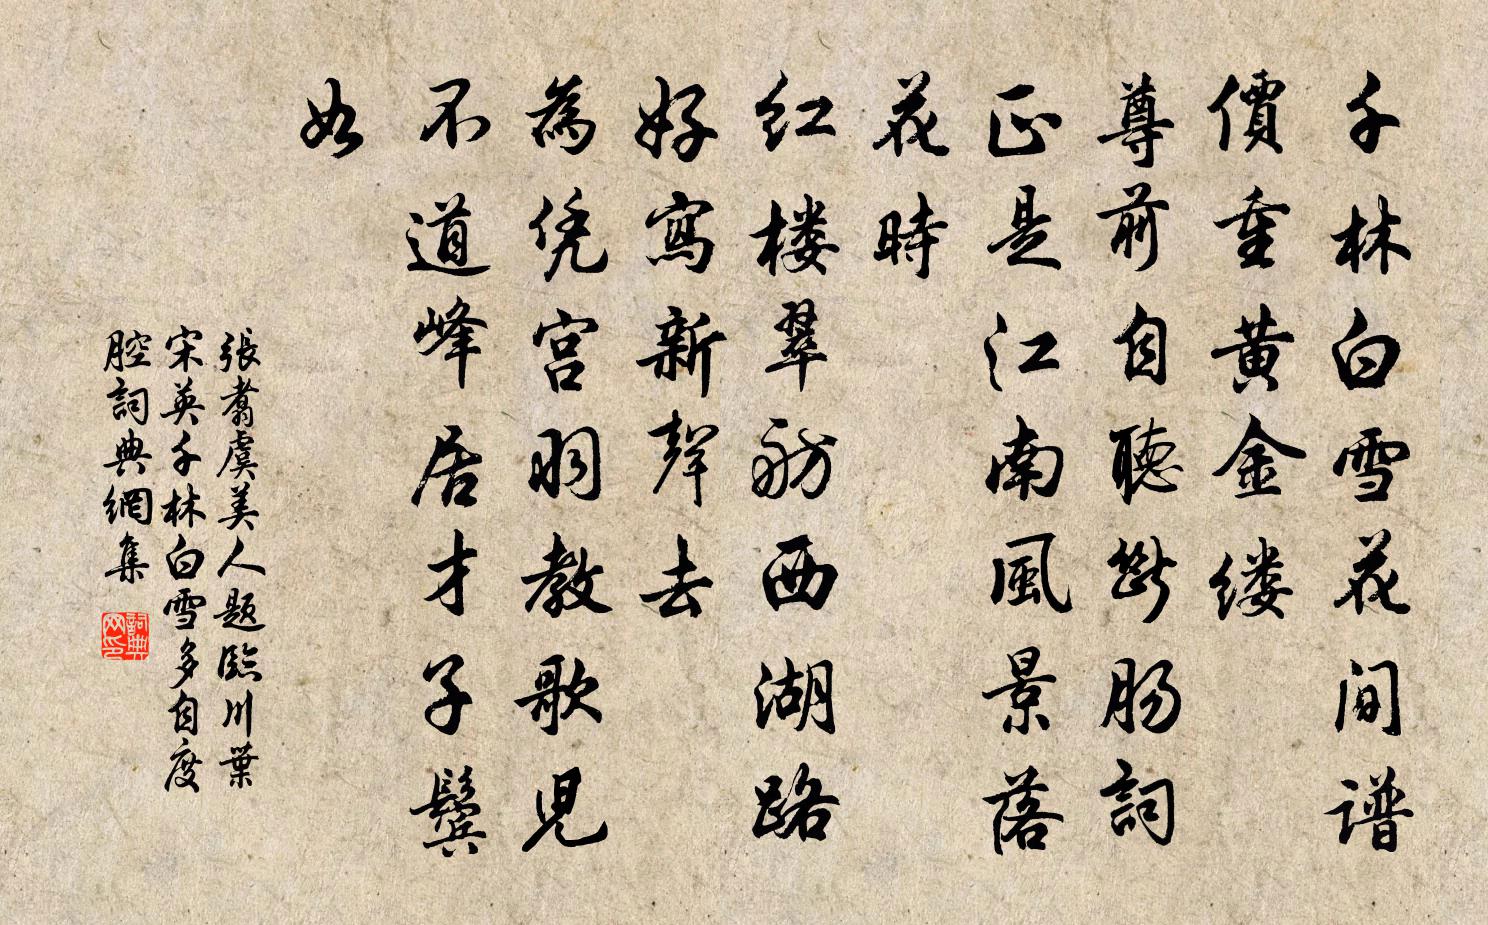 千林白雪花间谱
價重黄金缕
尊前自聴斷肠詞
正是江南風景落
花時
红楼翠舫西湖路
好寫新聲去
為凭宫羽教歌児
不道峰居才子鬓
如
張翥虞美人题臨川葉
宋英千林白雪多自度
腔詞典網集
詞典
网印